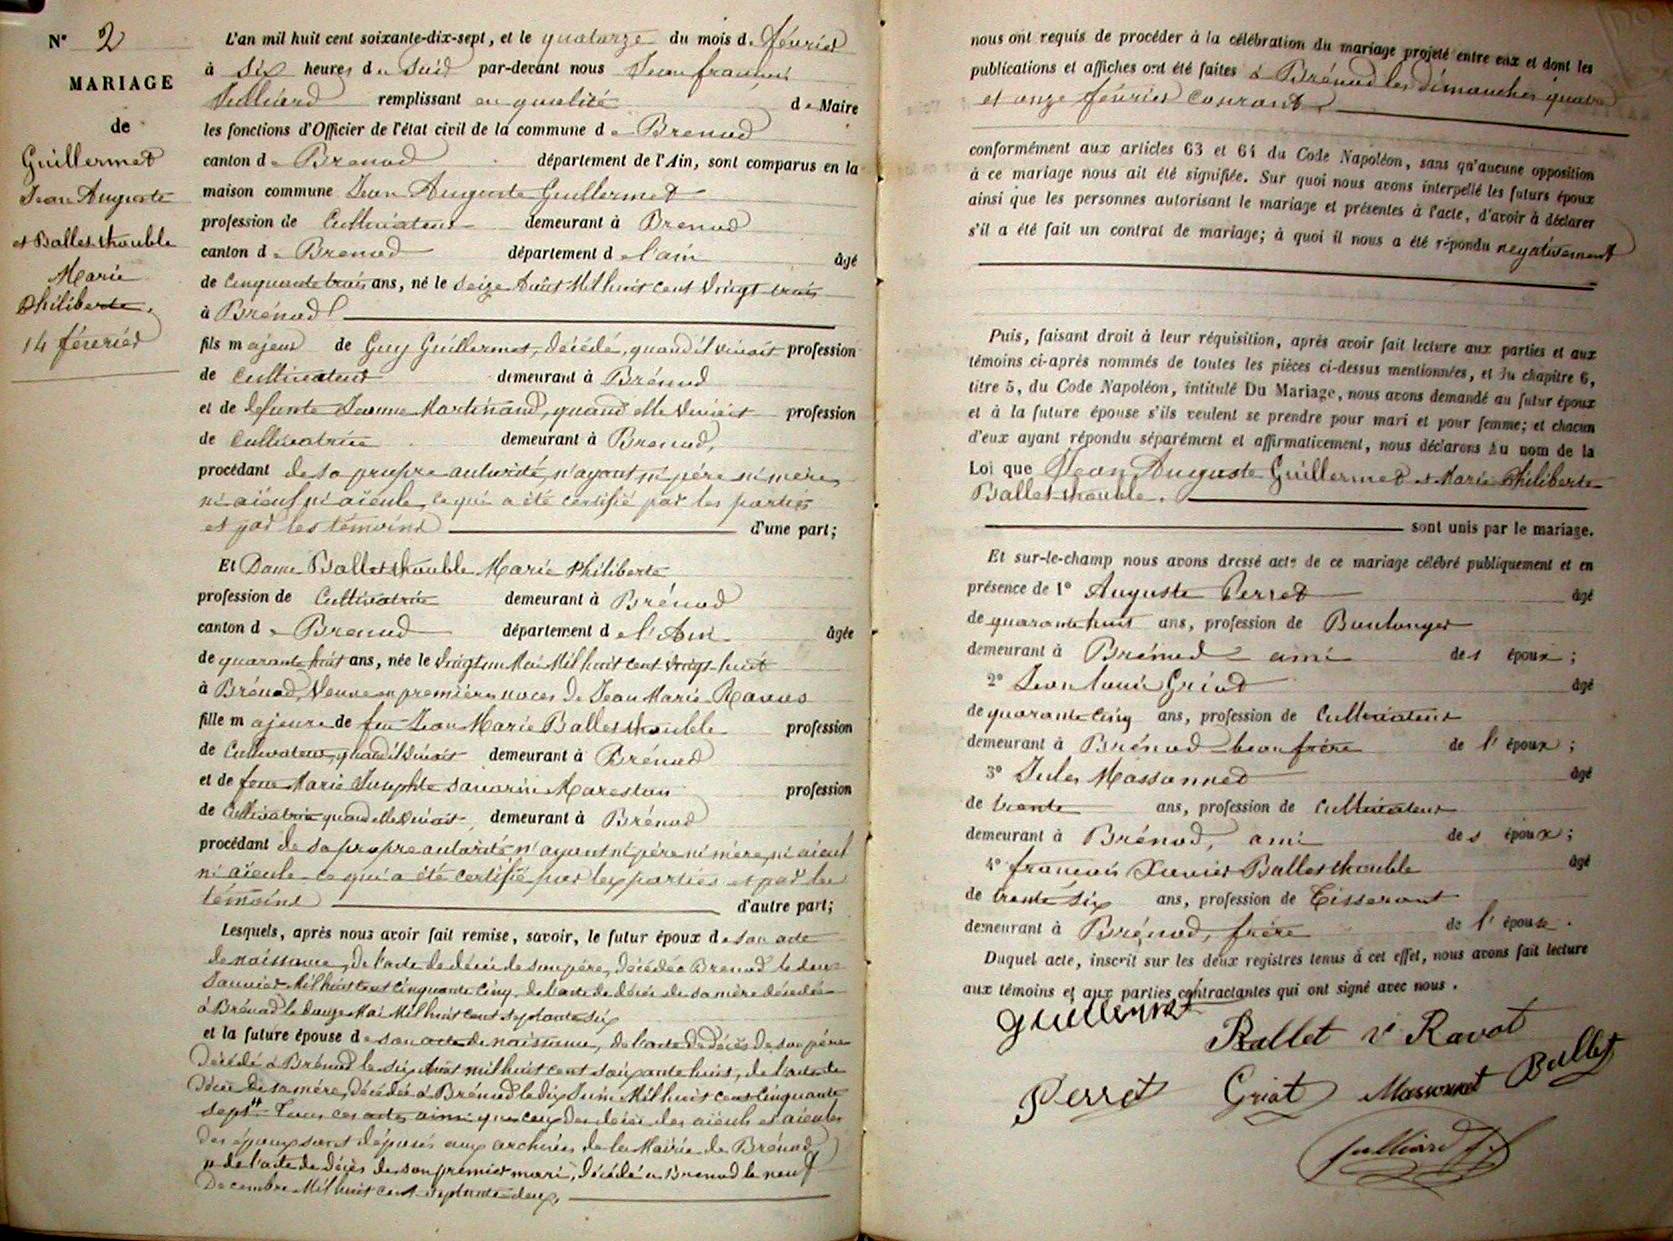 N° 2
MARIAGE
de
Guillermet
Jean Auguste
et Ballet dhouble
Marie
Philiberte.
14 février
L'an mil huit cent soixante-dix-sept, et le quatorze du mois de février
à six heures du soir par-devant nous Jean francois
Julliard remplissant en qualité de Maire
les fonctions d'Officier de l'état civil de la commune de Brenod
canton de Brenod département de l'Ain, sont comparus en la
maison commune Jean Auguste Guillermet
profession de Cultivateur demeurant à Brenod
canton de Brenod département de l'ain âgé
de cinquante trois ans, né le seize Août Mil huit cent vingt trois
à Brénod
fils majeur de Guy Guillermet, décédé, quand il vivait profession
de cultivateur demeurant à Brénod
et de defunte Jeanne Martinand, quand elle vivait profession
de Cultivatrice demeurant à Brenod,
procédant de sa propre autorité, n'ayant ni père ni mère,
ni aïeul ni aïeule, ce qui a été certifié par les parties
et par les témoins d'une part;
Et Dame Ballet dhouble Marie Philiberte
profession de Cultivatrice demeurant à Brénod
canton de Brenod département de l'Ain âgée
de quarante huit ans, née le vingt un Mai Mil huit cent vingt huit
à Brénod, Veuve en premières noces de Jean Marie Ravot
fille majeure de feu Jean Marie Ballet dhouble profession
de Cultivateur, quand il vivait demeurant à Brénod
et de feue Marie Josephte Savarin Marestan profession
de Cultivatrice quand elle vivait, demeurant à Brénod
procédant de sa propre autorité n'ayant ni père ni mère, ni aïeul
ni aïeule ce qui a été certifié par les parties et par les
témoins d'autre part;
Lesquels, après nous avoir fait remise, savoir, le futur époux de son acte
de naissance, de l'acte de décès de son père, décédé à Brenod le deux
Janvier Mil huit cent cinquante cinq, de l'acte de décès de sa mère décédée
à Brénod le douze Mai Mil huit cent septante six
et la future épouse de son acte de naissance, de l'acte de décès de son père
décédé à Brénod le six Août mil huit cent soixante huit, de l'acte de
décès de sa mère, décédée à Brénod le dix Juin Mil huit cent cinquante
sept " Tous ces actes ainsi que ceux des décès des aïeuls et aïeules
des époux sont déposés aux archives de la Mairie de Brénod
" de l'acte de décès de son premier mari, décédé à Brenod le neuf
Decembre Mil huit cent septante deux,
nous ont requis de procéder à la célébration du mariage projeté entre eux et dont les
publications et affiches ont été faites à Brénod les dimanches quatre
et onze février courant.
conformément aux articles 63 et 64 du Code Napoléon, sans qu'aucune opposition
à ce mariage nous ait été signifiée. Sur quoi nous avons interpellé les futurs époux
ainsi que les personnes autorisant le mariage et présentes à l'acte, d'avoir à déclarer
s'il a été fait un contrat de mariage; à quoi il nous a été répondu negativement
Puis, faisant droit à leur réquisition, après avoir fait lecture aux parties et aux
témoins ci-après nommés de toutes les pièces ci-dessus mentionnées, et du chapitre 6,
titre 5, du Code Napoléon, intitulé Du Mariage, nous avons demandé au futur époux
et à la future épouse s'ils veulent se prendre pour mari et pour femme; et chacun
d'eux ayant répondu séparément et affirmativement, nous déclarons au nom de la
Loi que Jean Auguste Guillermet et Marie Philiberte
Ballet dhouble.
sont unis par le mariage.
Et sur-le-champ nous avons dressé acte de ce mariage célébré publiquement et en
présence de 1° Auguste Perret âgé
de quarante huit ans, profession de Boulanger
demeurant à Brénod ami des époux;
2° Jean louis Griot âgé
de quarante cinq ans, profession de Cultivateur
demeurant à Brénod beau frère de l'époux;
3° Jules Massonnet âgé
de trente ans, profession de Cultivateur
demeurant à Brénod, ami des époux;
4° francois Xavier Ballet dhouble âgé
de trente six ans, profession de Tisserant
demeurant à Brénod, frère de l'épouse.
Duquel acte, inscrit sur les deux registres tenus à cet effet, nous avons fait lecture
aux témoins et aux parties contractantes qui ont signé avec nous.
guillermet
Ballet v<sup>e</sup> Ravot
Perret Griot Massonnet Ballet
Julliard